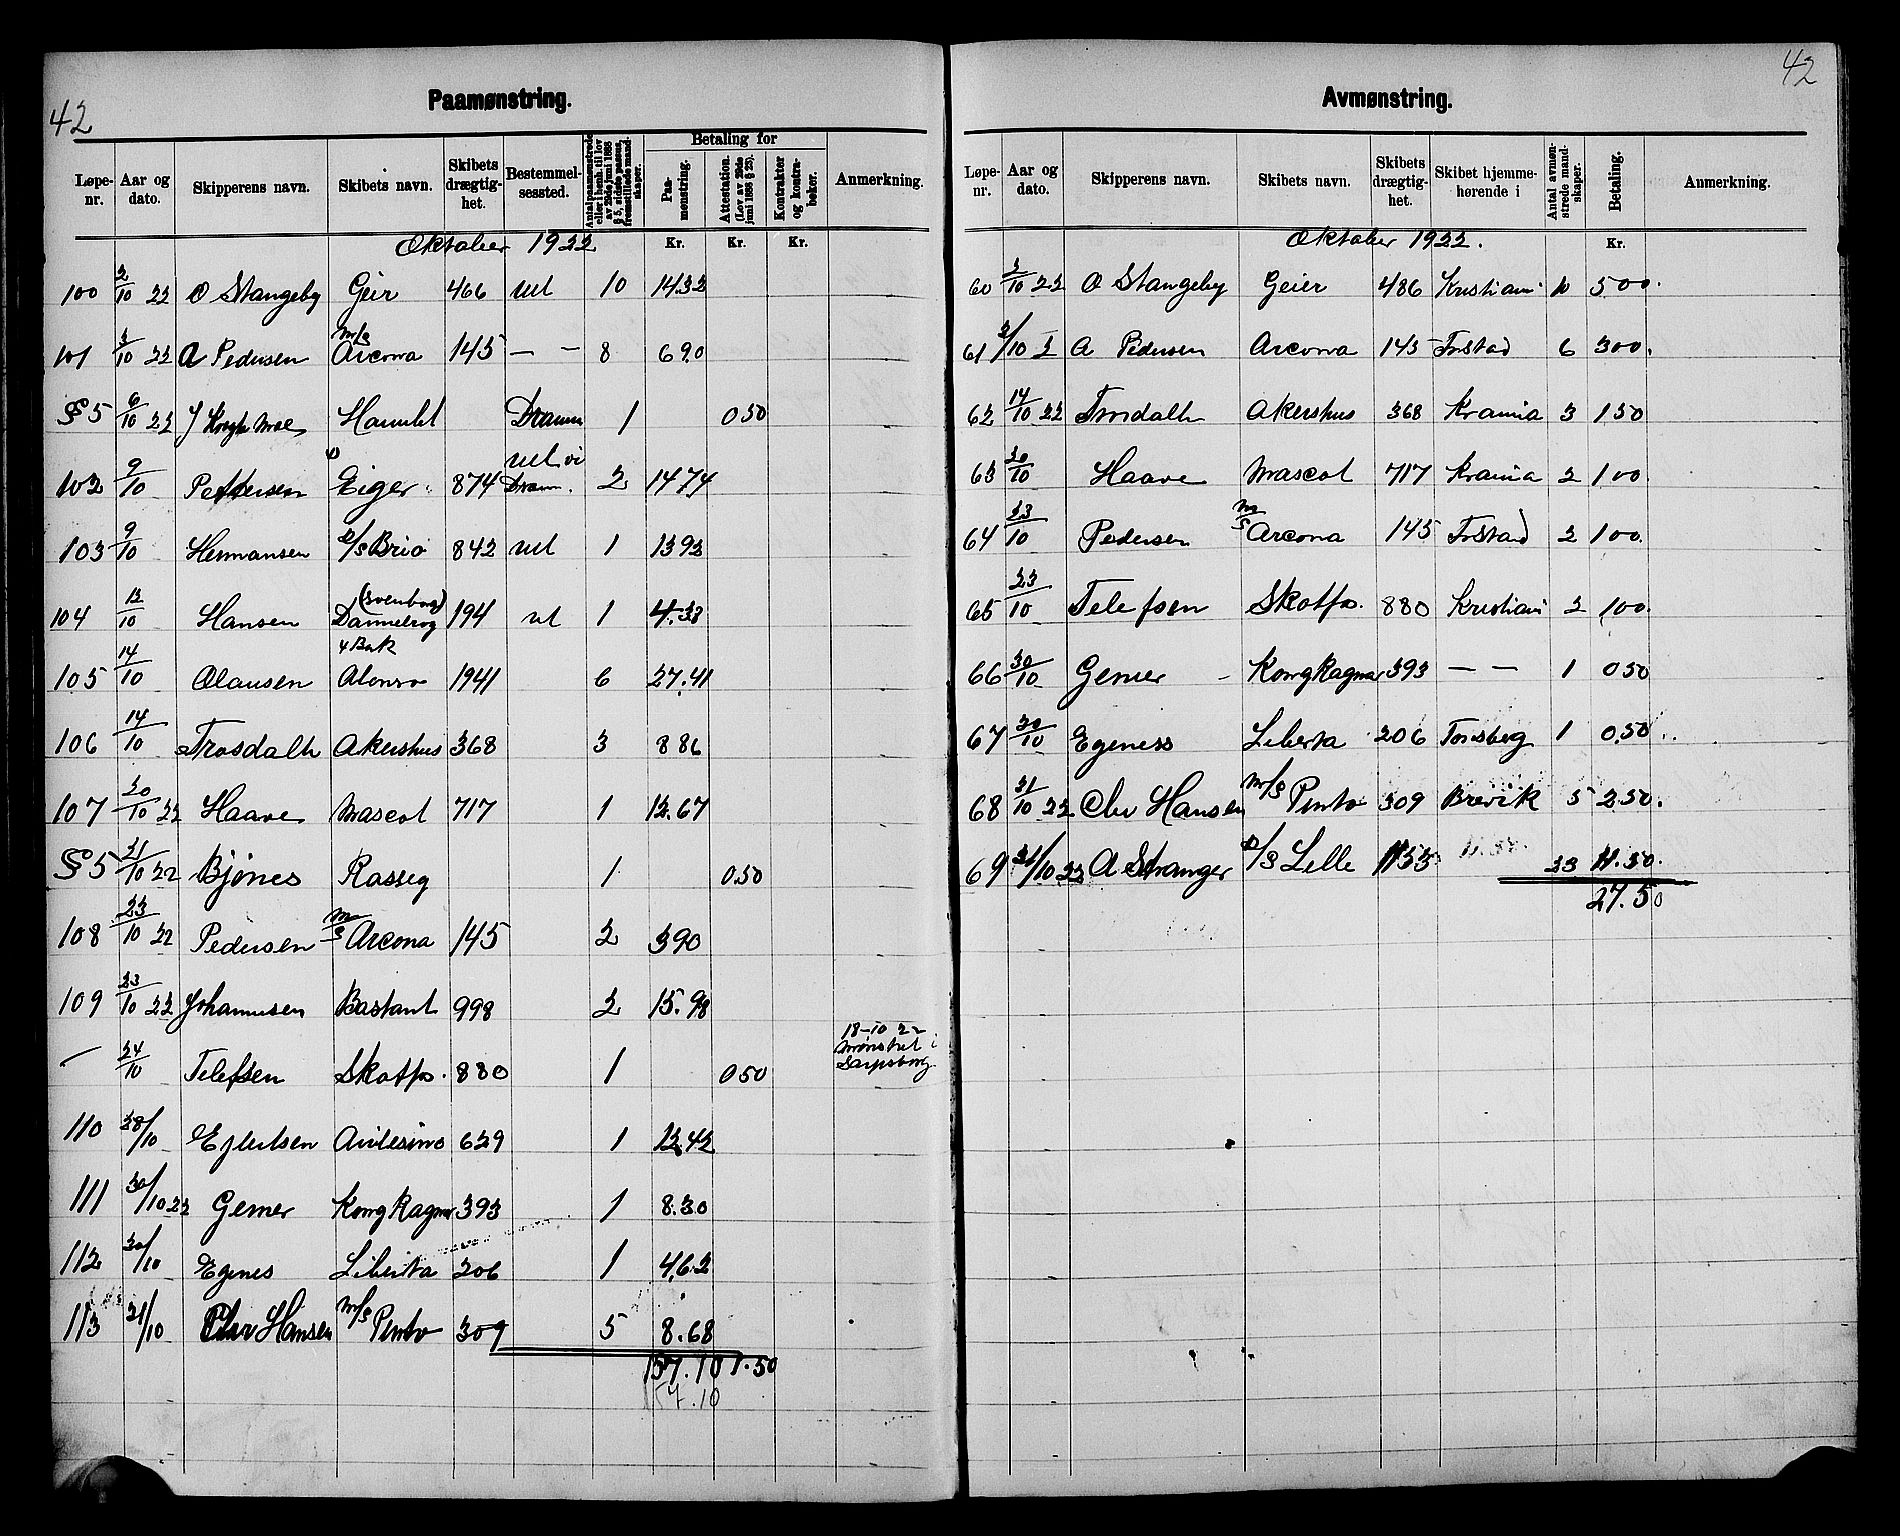 42
Paamønstring.
Løpe-nr. Aar og dato. Skipperens navn. Skibets navn. Skibets drægtig-het. Bestemmel-sessted. Antal paamønstrede eller i henh. til lov av 29de juni 1888 § 5, sidste passus, fremstillede mand-skaper. Betaling for Paa-mønstring. Attestation. (Lov av 29de juni 1888 § 23). Kontrakter og kontra-bøker. Anmerkning.
Oktober 1922 Kr. Kr. Kr.
100 2/10 22 O Stangeby Geir 466 ut 10 1432
101 3/10 22 A Pedersen m/s Arcona 145 — — 8 690
§ 5 6/10 22 J Hamlet Dramm 1 050
102 9/10 Pettersen Eiger 874 ut vi Dram. 2 1474
103 9/10 Hermansen s/s Brio 842 ut 1 1393
104 12/10 Hansen (Svenborg) Dannebrog 194 ut 1 4.38
105 14/10 Olausen 4 Bark Alonso 1941 6 27.41
106 14/10 Trosdalh Akershus 368 3 886
107 20/10 22 Haave Mascot 717 1 12.67
§ 5 21/10 22 Bjønes Rasseg 1 050
108 23/10 22 Pedersen m/s Arcona 145 2 390
109 23/10 22 Johannesen Bastant 998 2 15.98
— 24/10 Telefsen Skotfos. 880 1 050 18-10 22 mønstret i Sarpsborg
110 28/10 Ejlertsen 629 1 12.42
111 30/10 22 Gerner Kong Ragnar 393 1 8.30
112 30/10 Egenes Liberta 206 1 4,62
113 31/10 Chr Hansen m/s Pinto 309 5 8.68
157.10 1.50
157.10
42
Avmønstring.
Løpe-nr. Aar og dato. Skipperens navn. Skibets navn. Skibets drægtig-het. Skibet hjemme-hørende i Antal avmøn-strede mand-skaper. Betaling. Anmerkning.
Oktober 1922. Kr.
60 2/10 22 O Stangeby Geier 486 Kristiani 10 500.
61 3/10 2 A Pedersen Arcona 145 6 300.
62 14/10 22 Trosdalh Akershus 368 Krania 3 150
63 20/10 Haave Mascot 717 Krania 2 100.
64 23/10 Pedersen m/s Arcona 145 2 100.
65 23/10 Telefsen Skotfos. 880 Kristiani 2 100.
66 30/10 Gerner Kong Ragnar 393 — — 1 050
67 30/10 Egeness Liberta 206 Tønsberg 1 0.50
68 31/10 22 Chr Hansen m/s Pinto 309 Brevik 5 2.50.
69 31/10 22 A Stranger D/S Lille 1153 11.50. 23 11.50.
27.50